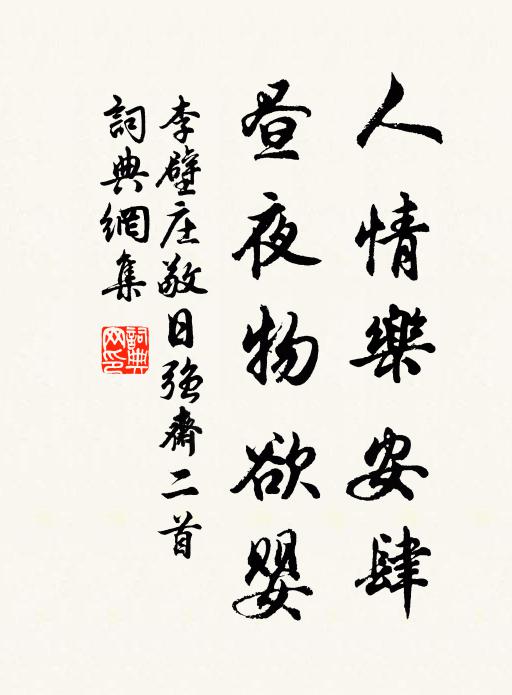 人情樂安肆
昼夜物欲嬰
李壁庄敬日強齋二首
詞典網集
詞典網印